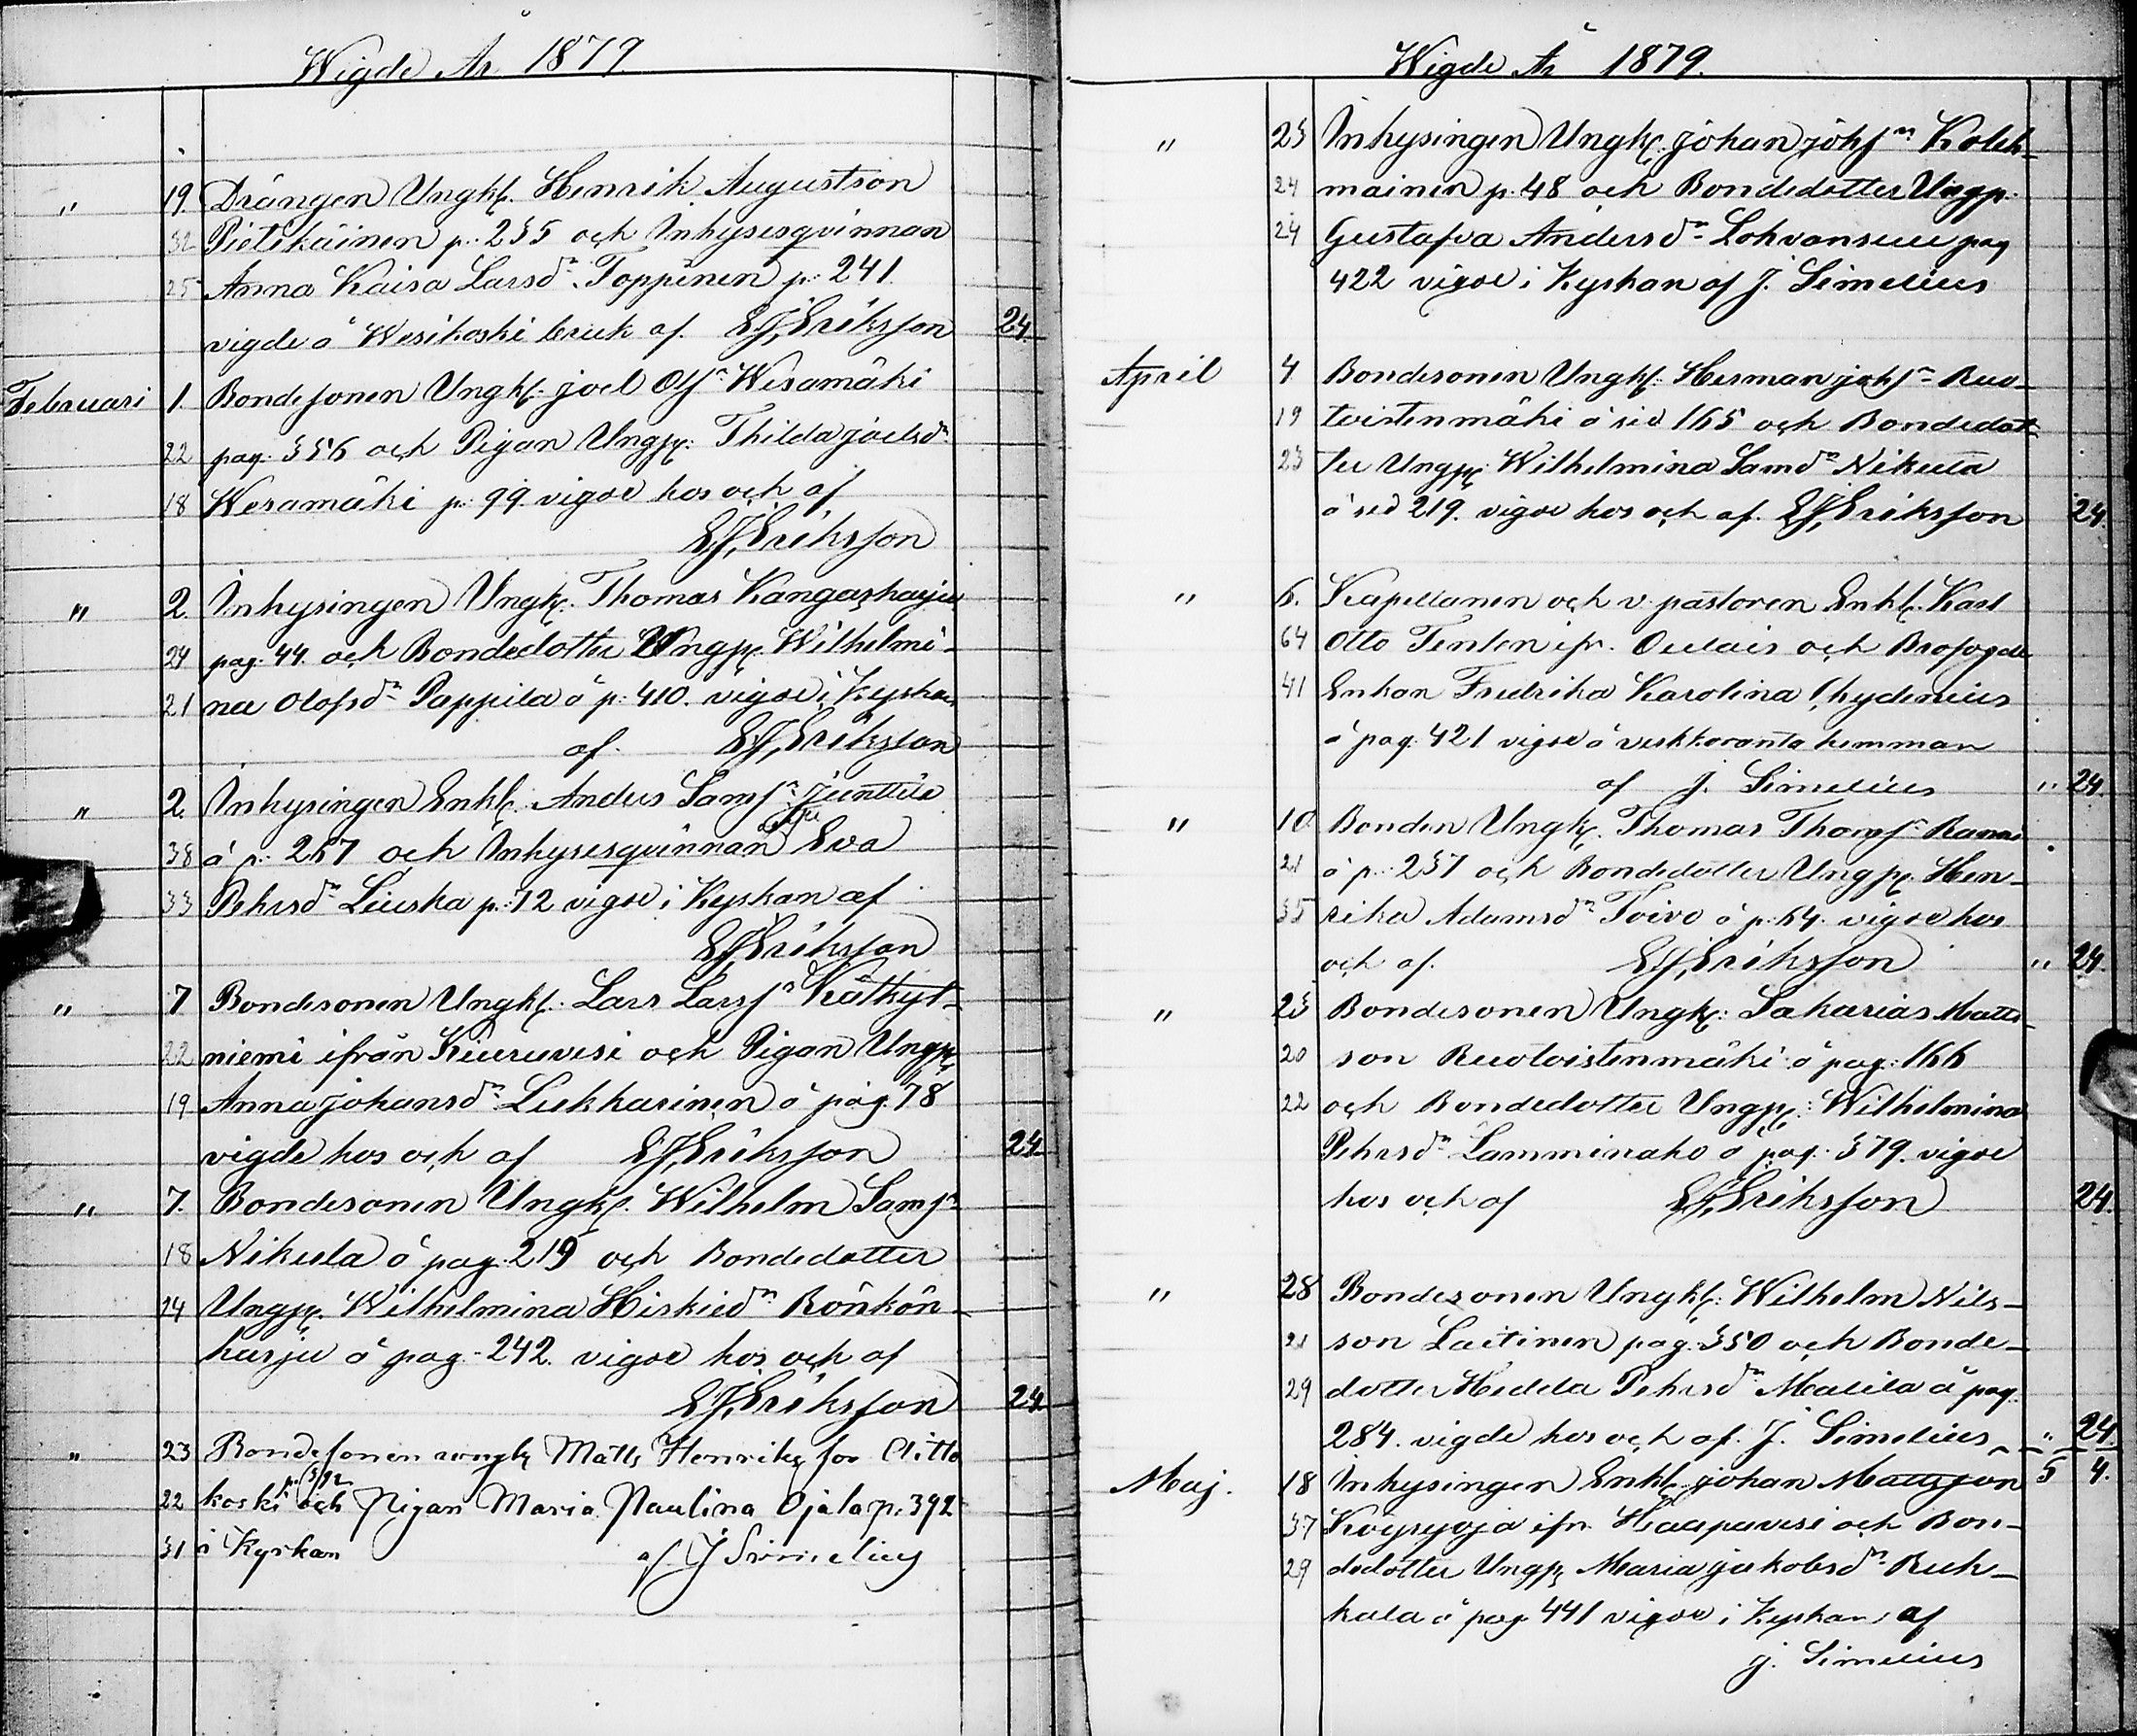 Wigde År 1879.
" 19. Drängen Ungk. Henrik Augustson
32 Pietikäinen p. 235 och Inhysesqvinnan
25 Anna Kaisa Larsdr. Toppinen p. 241.
vigde å Wesikoski bruk af. E.J. Eriksson 24.
Februari 1. Bondesonen Ungk. Joel Olsn Wesamäki
22 pag. 356 och Pigan Ungp. Thilda Joelsdr
18 Wesamäki p. 99. vigde hos och af
E.J. Eriksson
" 2. Inhysingen Ungk. Thomas Kangasharju
24 pag. 44. och Bondedotter Ungp. Wilhelmi-
21 na Olofsdr Pappila å p. 410. vigde i Kyrkan
af E.J. Eriksson
" 2. Inhysingen Enkl. Anders Samsn Junttila
38 å p. 267 och Inhysesqvinnan Eva
33 Pehrsdr Liuska p. 72 vigde i Kyrkan af
E.J. Eriksson
" 7 Bondesonen Ungk. Lars Larsn Kätkyt-
22 niemi ifrån Kiuruvesi och Pigan Ungp.
19 Anna Johansdr Lukkarinen å pag. 78
vigde hos och af E.J. Eriksson 24.
" 7. Bondesonen Ungk. Wilhelm Samsn
18 Nikula å pag. 219 och Bondedotter
24 Ungp. Wilhelmina Hiskiedr Rönkön-
harju å pag. 242. vigde hos och af
E.J. Eriksson 24.
" 23 Bondesonen ungk Matts Henriks son Aitto
p. 392
22 koski och Pigan Maria Paulina Ojala p. 392
31 i Kyrkan af J Simelius
Wigde År 1879.
" 23 Inhysingen Ungk. Johan Johsn Koleh-
24 mainen p. 48 och Bondedotter Ungp.
24 Gustafva Andersdr Lohvansuu pag
422 vigde i Kyrkan af J. Simelius
April 4. Bondesonen Ungk. Herman Johsn Ruo-
19 toistenmäki å sid 165 och Bondedot-
23 ter Ungp. Wilhelmina Samdr Nikula
å sid 219. vigde hos och af. E.J. Eriksson 24.
" 6. Kapellanen och v. pastoren Enkl. Karl
64 Otto Tenlen ifr. Oulais och Brofogde
41 Enkan Fredrika Karolina Chydenius
å pag. 421 vigde å verkkoranta hemman
af J. Simelius " 24.
" 10. Bonden Ungk. Thomas Thomsn Ranna
21 å p. 237 och Bondedotter Ungp. Hen-
35 rika Adamsdr Toivo å p. 64. vigde hos
och af. E.J. Eriksson " 24.
" 23 Bondesonen Ungk. Sakarias Matts-
20 son Ruotoistenmäki å pag. 166
22 och Bondedotter Ungp. Wilhelmina
Pehrsdr Lamminaho å pag. 379. vigde
hos och af E.J. Eriksson 24.
" 28 Bondesonen Ungk. Wilhelm Nils-
21 son Laitinen pag. 350 och Bonde-
29 dotter Hedda Pehrsdr Malila å pag.
284. vigde hos och af. J. Simelius " 24.
Maj. 18 Inhysingen Enkl. Johan Mattsson 5 4.
37 Köyryoja ifr. Haapavesi och Bon-
29 dedotter Ungp. Maria Jakobsdr Ruh-
kala å pag. 441 vigde i Kyrkan af
J. Simelius